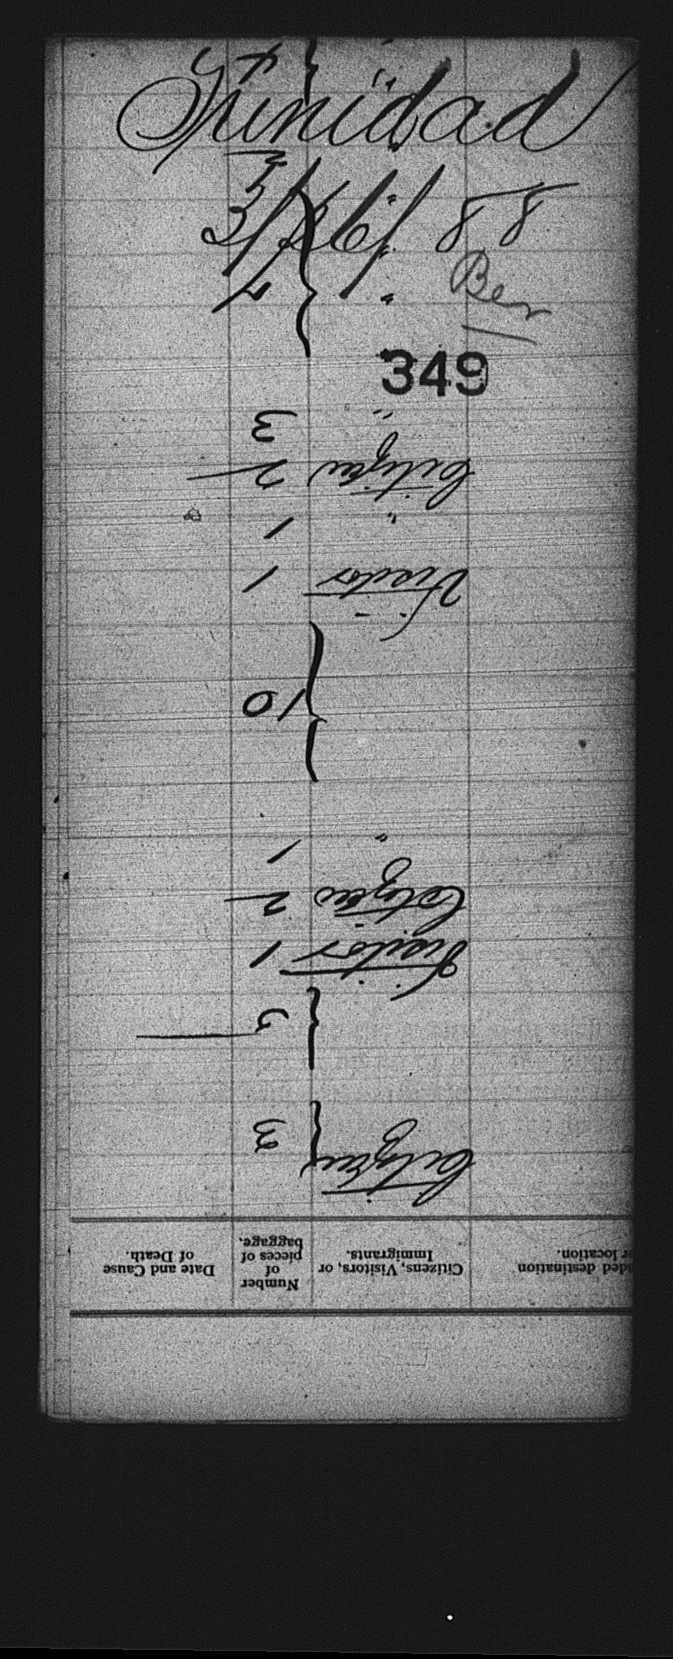 Trinidad
3/26/88
Ber
349
Date and Cause of Death.
Number of pieces of baggage.
Citizens, Visitors, or Immigrants.
ded destination
r location.
Citizen 3
3
Visitor 1
Citizen 2
" 1
10
Visitor 1
" 1
Citizen 2
" 3